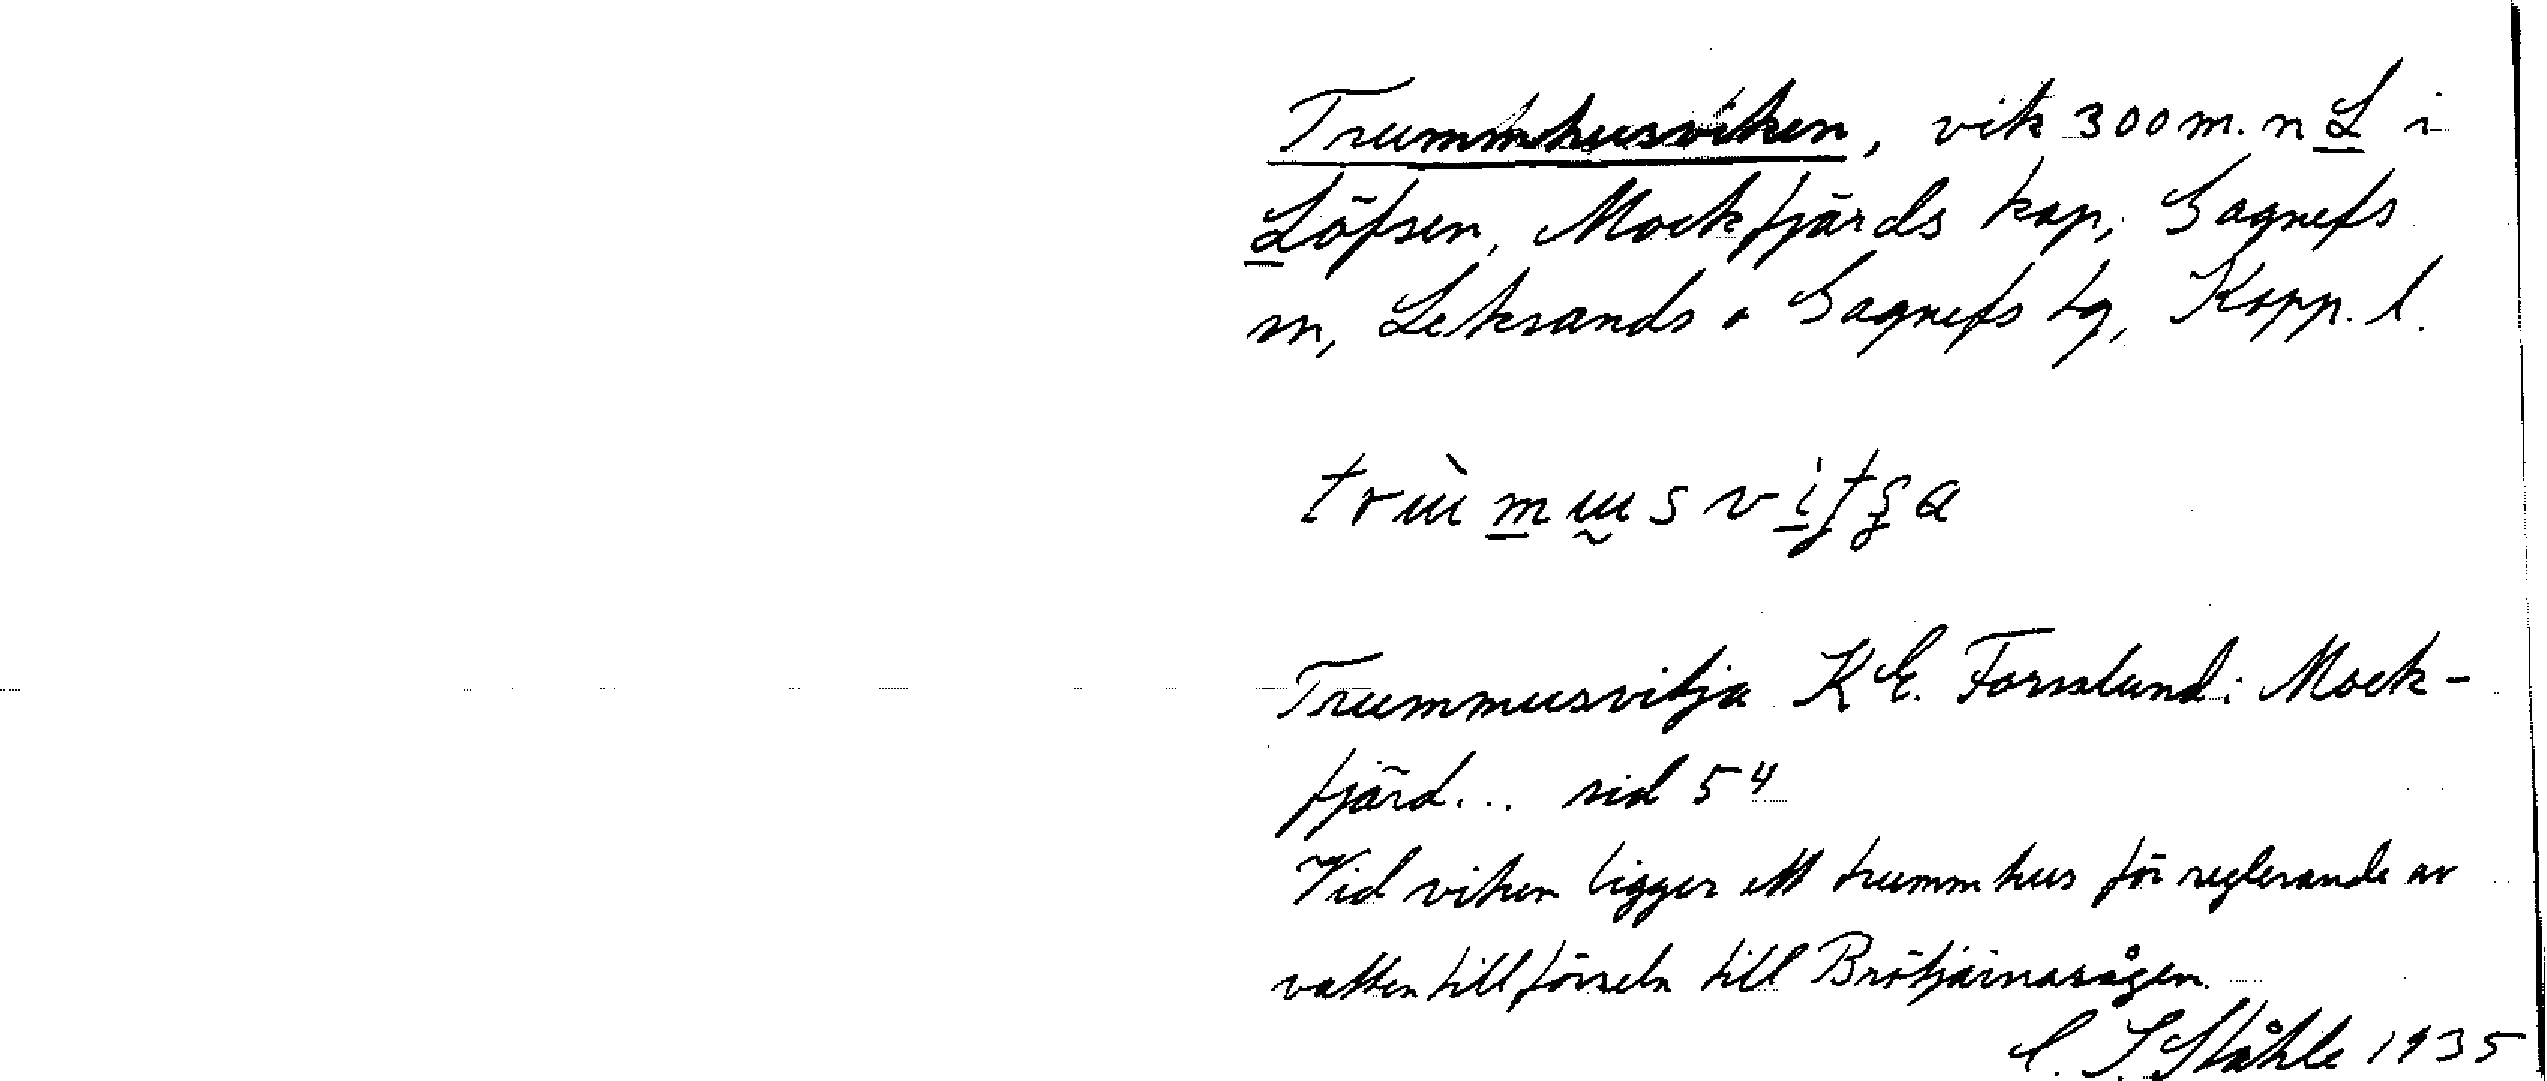 Trummhusviken, vik 300 m. n L i
Löfsen, Mockfjärds kap, Gagnefs
sn, Leksands o Gagnefs tg, Kopp. l.
Trummusvitja K E. Forsslund: Mock-
fjärd... sid 54
Vid viken ligger ett trummhus för reglerande av
vattentillförseln till Brötjärnasågen.
C. I. Ståhle 1935